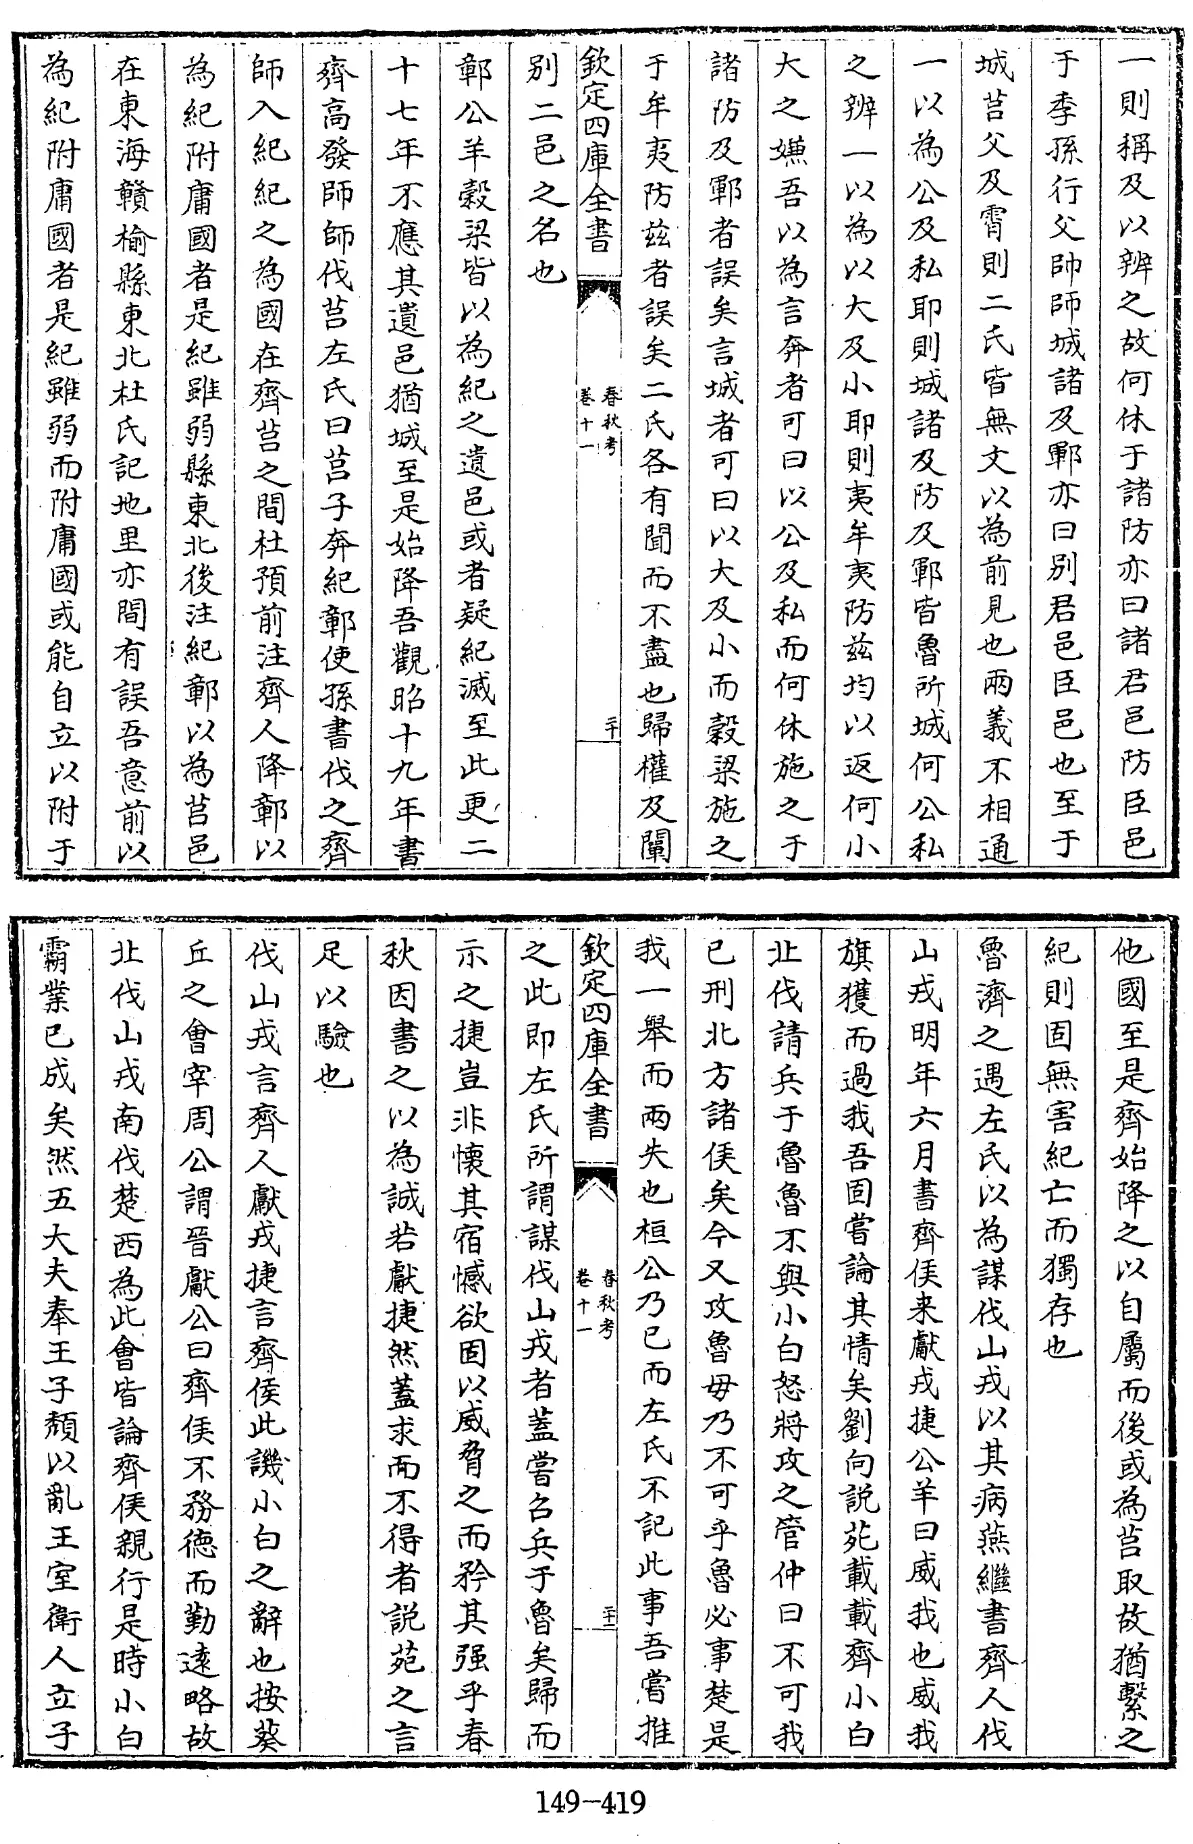 一則稱及以辨之故何休于諸防亦曰諸君邑防臣邑
于季孫行父帥師城諸及鄆亦曰别君邑臣邑也至于
城莒父及霄則二氏皆無文以為前見也兩義不相通
一以為公及私耶則城諸及防及鄆皆魯所城何公私
之辨一以為以大及小耶則夷牟夷防兹均以返何小
大之嫌吾以為言奔者可曰以公及私而何休施之于
諸防及鄆者誤矣言城者可曰以大及小而榖梁施之
于牟夷防兹者誤矣二氏各有聞而不盡也歸權及闡
欽定四庫全書
春秋考
卷十一
二十
别二邑之名也
鄣公羊榖梁皆以為紀之遺邑或者疑紀滅至此更二
十七年不應其遺邑猶城至是始降吾觀昭十九年書
齊高發師師伐莒左氏曰莒子奔紀鄣使孫書伐之齊
師入紀紀之為國在齊莒之間杜預前注齊人降鄣以
為紀附庸國者是紀雖弱縣東北後注紀鄣以為莒邑
在東海贛榆縣東北杜氏記地里亦間有誤吾意前以
為紀附庸國者是紀雖弱而附庸國或能自立以附于
他國至是齊始降之以自屬而後或為莒取故猶繫之
紀則固無害紀亡而獨存也
魯濟之遇左氏以為謀伐山戎以其病燕繼書齊人伐
山戎明年六月書齊侯来獻戎捷公羊曰威我也威我
旗獲而過我吾固嘗論其情矣劉向說苑載載齊小白
北伐請兵于魯魯不與小白怒將攻之管仲曰不可我
已刑北方諸侯矣今又攻魯毋乃不可乎魯必事楚是
我一舉而兩失也桓公乃已而左氏不記此事吾嘗推
欽定四庫全書
春秋考
卷十一
二十一
之此即左氏所謂謀伐山戎者蓋嘗召兵于魯矣歸而
示之捷豈非懷其宿憾欲固以威脅之而矜其强乎春
秋因書之以為誠若獻捷然蓋求而不得者説苑之言
足以驗也
伐山戎言齊人獻戎捷言齊侯此譏小白之辭也按葵
丘之會宰周公謂晉獻公曰齊侯不務德而勤遠略故
北伐山戎南伐楚西為此會皆論齊侯親行是時小白
霸業已成矣然五大夫奉王子頽以亂王室衛人立子
149-419